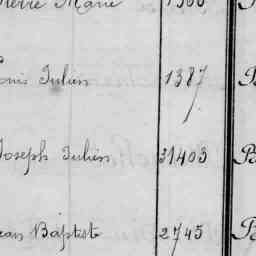 Pierre Marie 1366
Louis Julien 1387
Joseph Julien 31403
Jean Baptist 2745